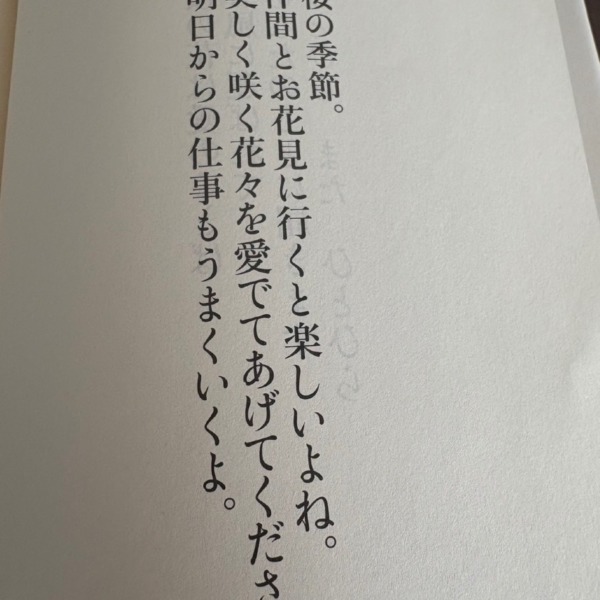 桜の季節。
仲間とお花見に行くと楽しいよね。
美しく咲く花々を愛でてあげてくださ
明日からの仕事もうまくいくよ。